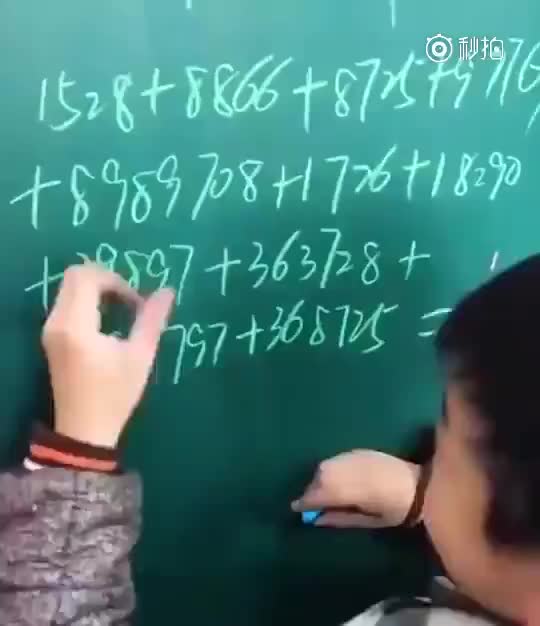 秒拍
1528+8866+8725+9776
+8989708+1726+18290
+39897+363728+
797+368725=